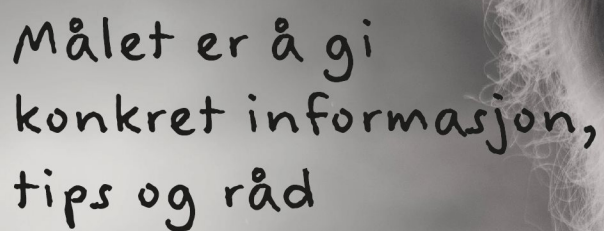 Målet er å gi
konkret informasjon,
tips og råd